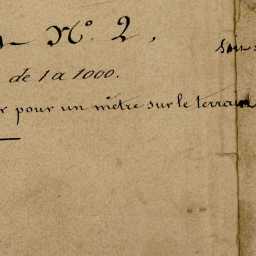 N.º 2,
de 1 a 1000.
pour un mètre sur le terrain